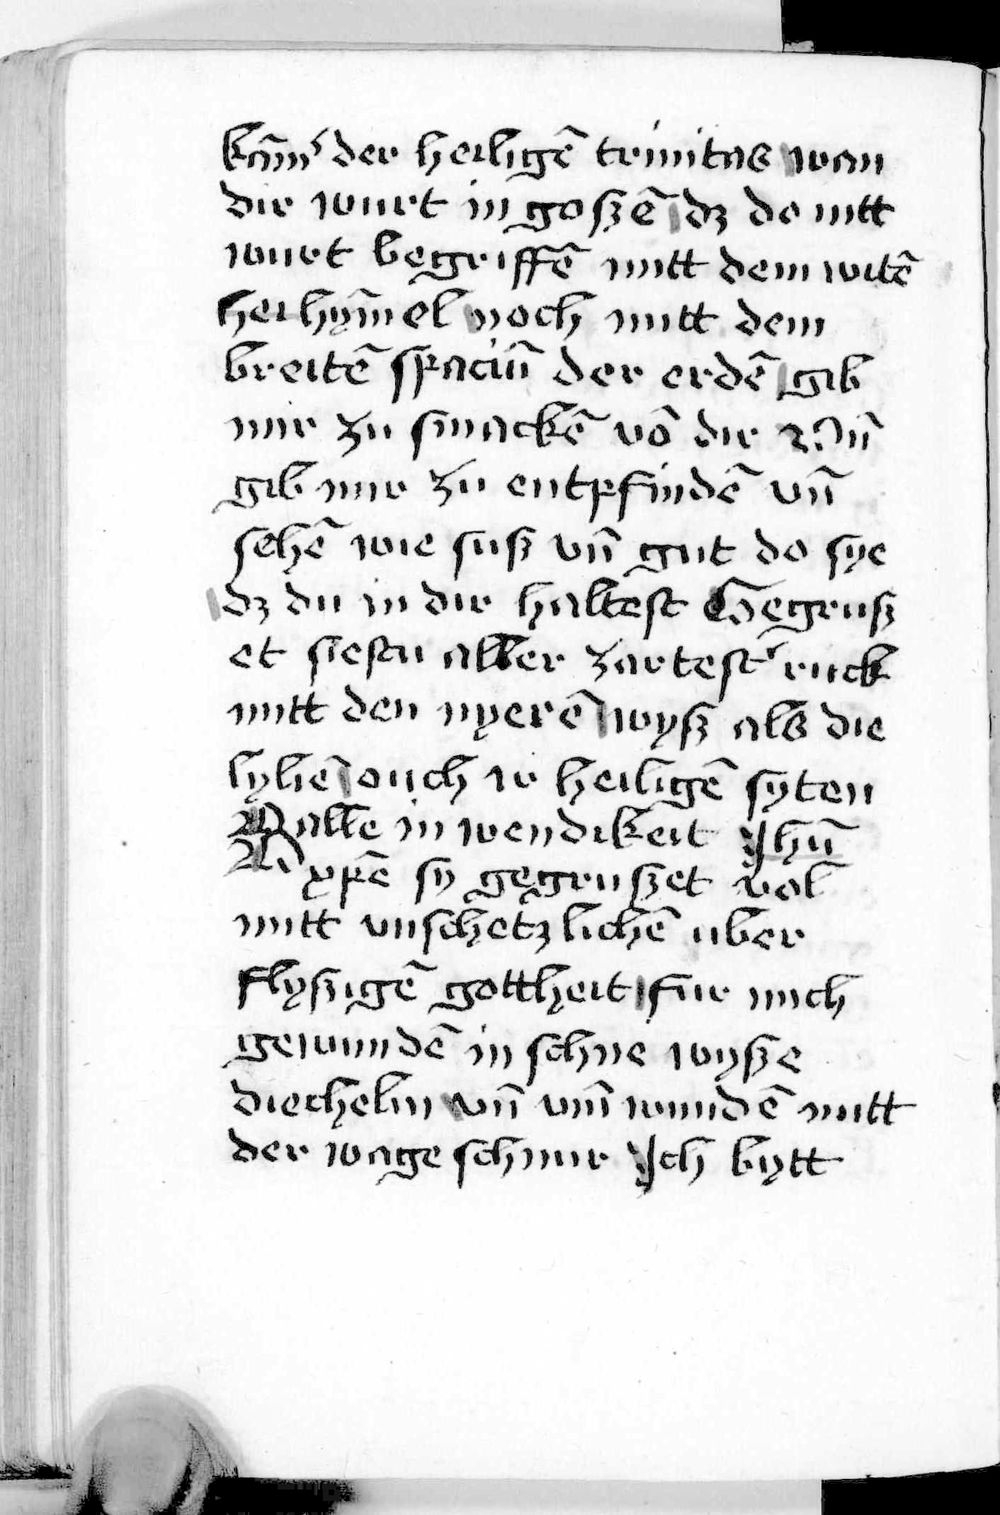 kam̄ʼ der heiligē trinitas wan
dir wurt in goszē dz do nitt
wurt begriffē mitt dem witē
herhym̄el noch mitt dem
breitē spaciū der erdē gib
mir zu smackē vō dir Nū
gib mir zu entpfindē vn̄
sehē wie susz vn̄ gut do sye
dz du in dir haltest Gegrusz
et siestu aller zartestʼ ruck
mitt den nyerē wysz als die
lyliē ouch ir heiligē syten
alle in wendikeit Jhū
xpē sy gegruszet vol
mitt vnschetzlichē uber
flyszigē gottheit fur mich
gewundē in schne wysze
diechelin vn̄ vm̄ wundē mitt
der wage schnur Ich bytt